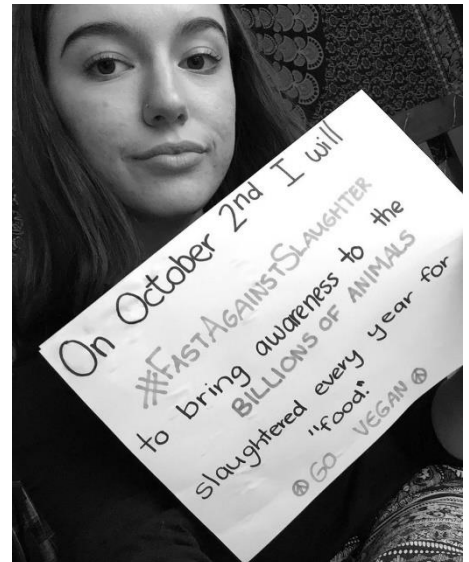 On October 2nd I will
#FASTAGAINSTSLAUGHTER
to bring awareness to the
BILLIONS OF ANIMALS
slaughtered every year for
"food."
☮ GO VEGAN ☮